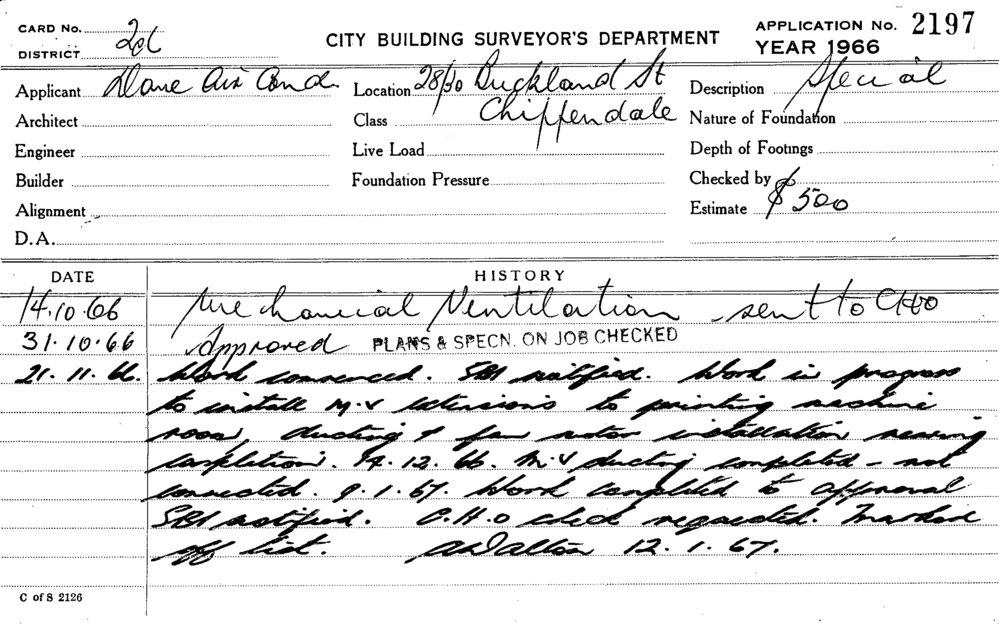 CARD No. 2
DISTRICT
CITY BUILDING SURVEYOR'S DEPARTMENT
APPLICATION No. 2197
YEAR 1966
Applicant Air Cond.
Location 28/30 Buckland St
Description Special
Architect
Class Chippendale
Nature of Foundation
Engineer
Live Load
Depth of Footings
Builder
Foundation Pressure
Checked by
Alignment
Estimate $500
D.A.
DATE
HISTORY
14.10.66 Mechanical Ventilation sent to CHO
31.10.66 Approved PLANS & SPECN. ON JOB CHECKED
21.11.66. Work commenced. notified. Work in progress
to install M.V extensions to printing machine
room, ducting & fan motor installation nearing
completion. 14.12.66. M.V ducting completed - not
connected. 9.1.67. Work completed to approval
notified. C.H.O check requested. Marked
off list. 12.1.67.
C of S 2126